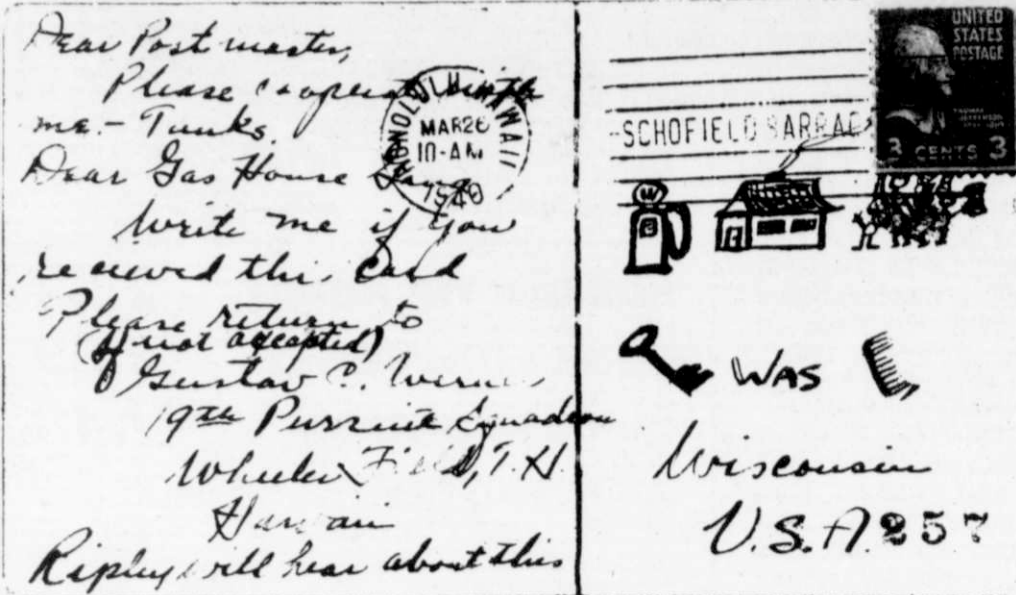 Dear Postmaster,
Please cooperate with
me. - Tunks.
Dear Gas House
Write me if you
recieved this card
Please return to
(if not accepted)
Gustav
19th Pursuit Squadron
Wheeler Field, T.H.
Hawaii
Ripley will hear about this
HONOLULU HAWAII
MAR 26
10-AM
1940
SCHOFIELD BARRAC
UNITED
STATES
POSTAGE
THOMAS
JEFFERSON
3 CENTS 3
WAS
Wisconsin
U.S.A. 257